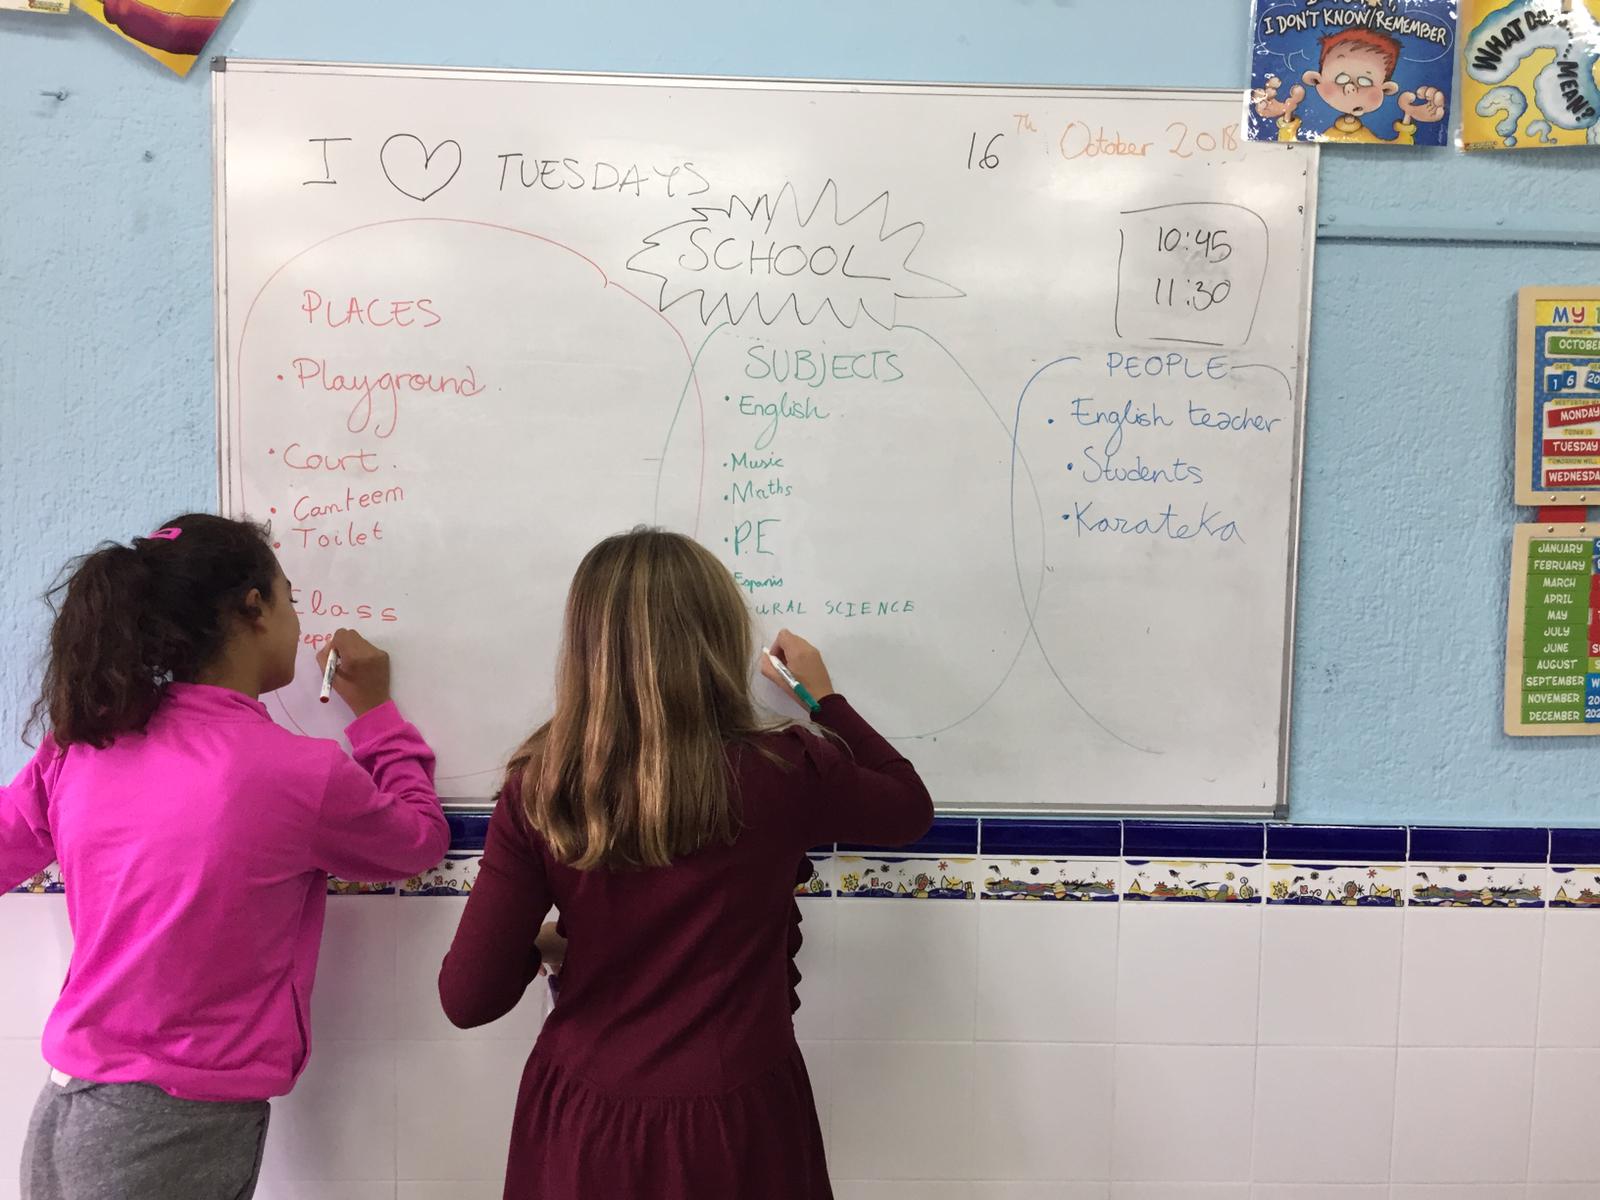 I ♡ TUESDAYS
16 Th October 2018
SCHOOL
10:45
11:30
PLACES
• Playground
• Court.
• Canteem
• Toilet
Class
SUBJECTS
• English
• Music
• Maths
• P.E
Espanis
URAL SCIENCE
PEOPLE
• English teacher
• Students
• Karateka
I DON'T KNOW/REMEMBER
WHAT DO... MEAN?
MY
OCTOBER
16 20
MONDAY
TUESDAY
WEDNESDA
JANUARY
FEBRUARY
MARCH
APRIL
MAY
JULY
JUNE
AUGUST
SEPTEMBER
NOVEMBER
DECEMBER